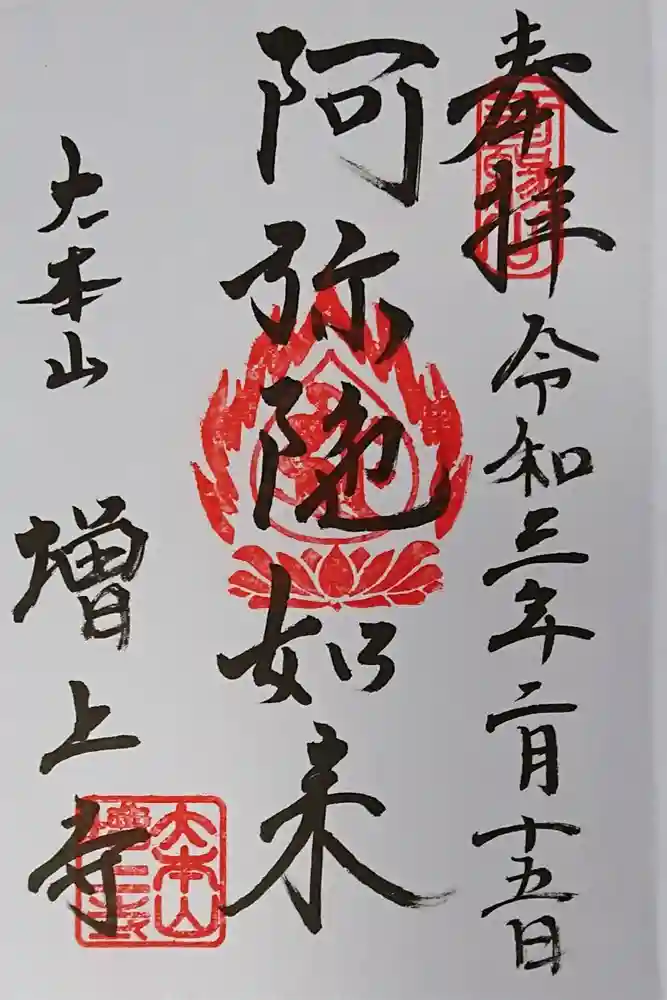 奉拝 令和三年二月十五日
阿弥陀如来
大本山 増上寺
大本山
増上寺